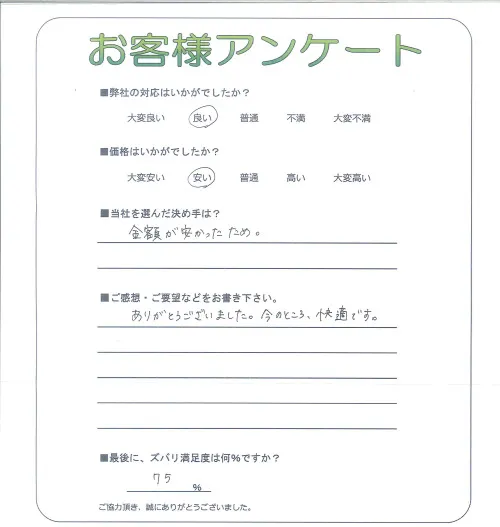 お客様アンケート
■弊社の対応はいかがでしたか？
大変良い 良い 普通 不満 大変不満
■価格はいかがでしたか？
大変安い 安い 普通 高い 大変高い
■当社を選んだ決め手は？
金額が安かったため。
■ご感想・ご要望などをお書き下さい。
ありがとうございました。今のところ、快適です。
■最後に、ズバリ満足度は何％ですか？
75 ％
ご協力頂き、誠にありがとうございました。